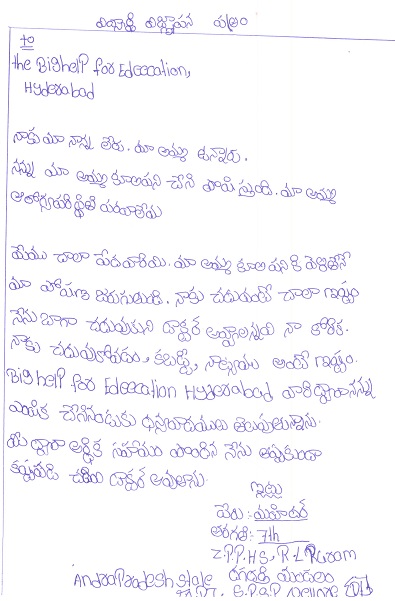 విద్యార్థి విజ్ఞాపన పత్రం
to
the Bighelp for Edeecation,
Hyderabad
నాకు మా నాన్న లేరు. మా అమ్మ ఉన్నారు.
నన్ను మా అమ్మ కూలిపని చేసి పోషిస్తుంది. మా అమ్మ
ఆరోగ్యపరిస్థితి పరవాలేదు
మేము చాలా పేదవారిమి. మా అమ్మ కూలి పనికి వెళితేనే
మా పోషణ జరుగుతుంది. నాకు చదువంటే చాలా ఇష్టం
నేను బాగా చదువుకుని డాక్టర్ అవ్వాలన్నది నా కోరిక.
నాకు చదువుకోవడం, కబడ్డీ, నాట్యము అంటే ఇష్టం.
Bighelp for Edeecation Hyderabad వారి ద్వారా నన్ను
ఎంపిక చేసినందుకు ధన్యవాదములు తెలుపుతున్నాను.
మీ ద్వారా ఆర్థిక సహాయం పొందిన నేను తప్పకుండా
కష్టపడి చదివి డాక్టర్ అవుతాను.
ఇట్లు
పేరు: మహితర్
తరగతి: 7th
Z.P.P.H.S, R.L.R Gram
AndraPradesh State మండలం
S.P.S.R Nellore